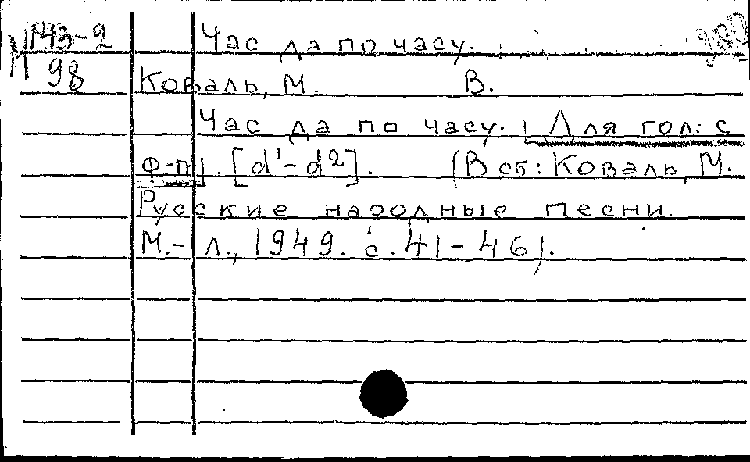 М 143-2 Час да по часу.
98 Коваль, М. В.
Час да по часу. [Для гол. с
ф-п]. [d¹-d²]. (В сб: Коваль, М.
Русские народные песни.
М.-Л., 1949. с. 41-46).